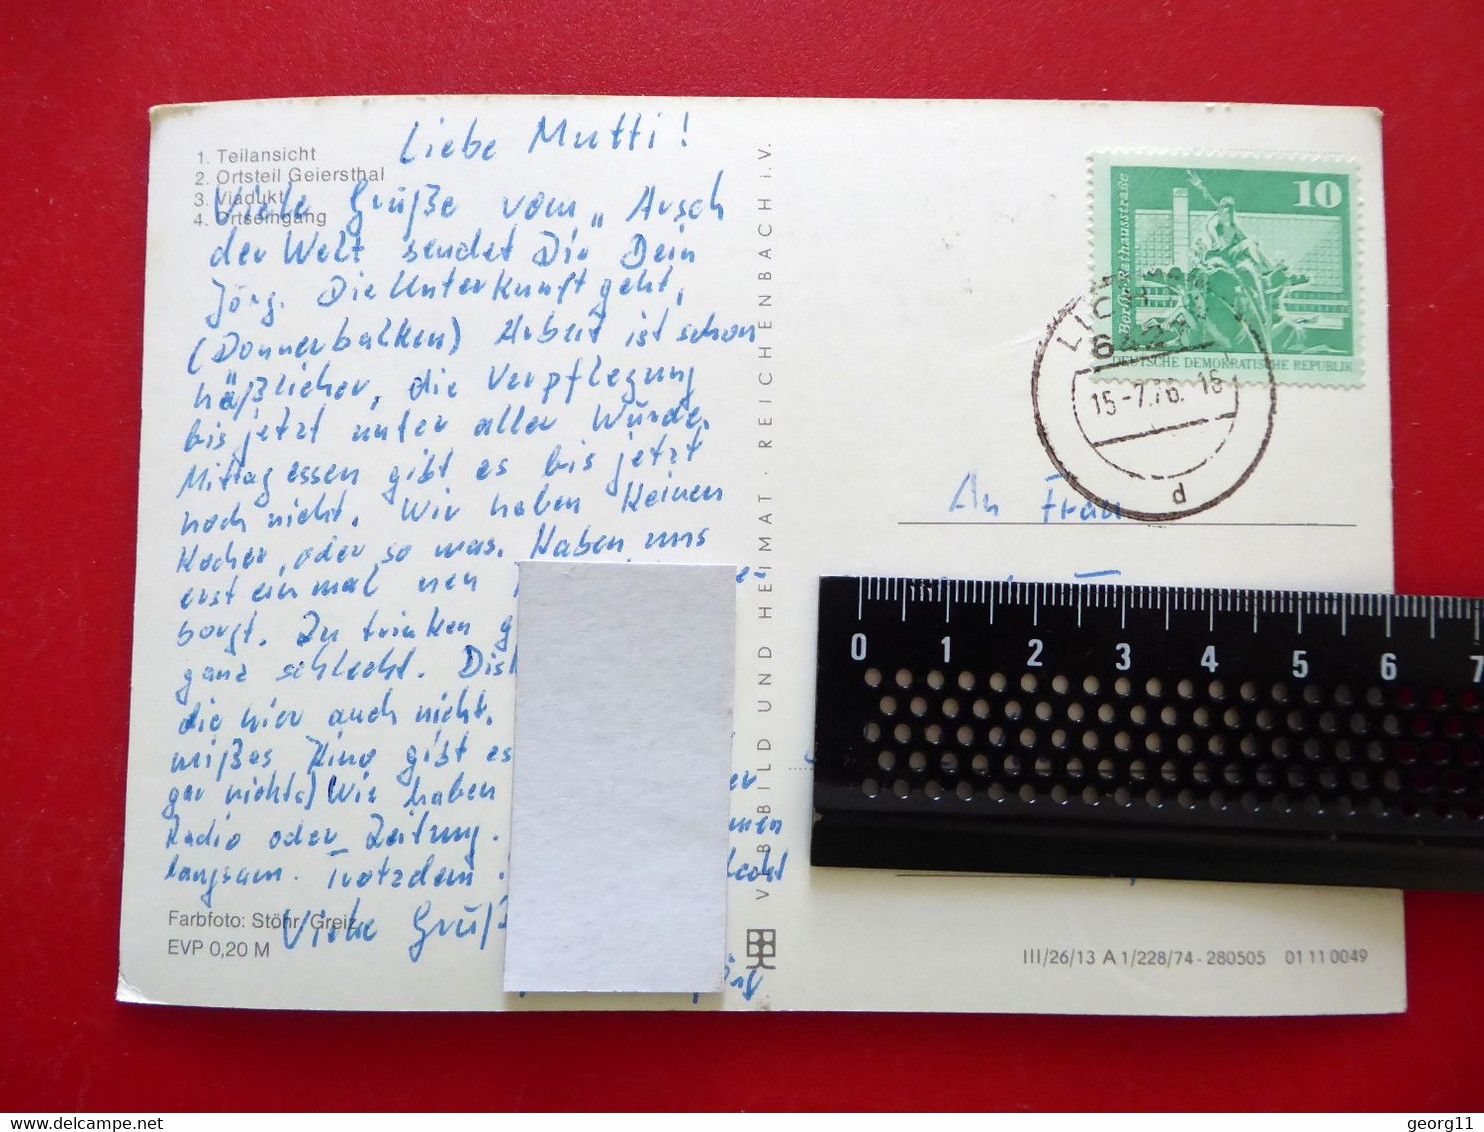 1. Teilansicht
2. Ortsteil Geiersthal
3. Viadukt
4. Ortseingang
Liebe Mutti!
Viele Grüße vom „Arsch
der Welt sendet Dir Dein
Jörg. Die Unterkunft geht,
(Donnerbalken) Arbeit ist schon
häßlicher, die Verpflegung
bis jetzt unter aller Würde.
Mittagessen gibt es bis jetzt
noch nicht. Wir haben keinen
Kocher, oder so was. Haben uns
erst einmal nen
borgt. Zu trinken g
ganz schlecht. Dis
die hier auch nicht.
mißes Kino gibt es
gar nichts) Wir haben
Radio oder Zeitung.
langsam. Trotzdem
Viele Grüß
Farbfoto: Stöhr, Greiz
EVP 0,20 M
VEB BILD UND HEIMAT · REICHENBACH i.V.
10
Berlin-Rathausstraße
DEUTSCHE DEMOKRATISCHE REPUBLIK
15-7.76. 18
d
An Frau
0 1 2 3 4 5 6 7
III/26/13 A 1/228/74 - 280505 01 11 0049
georg11